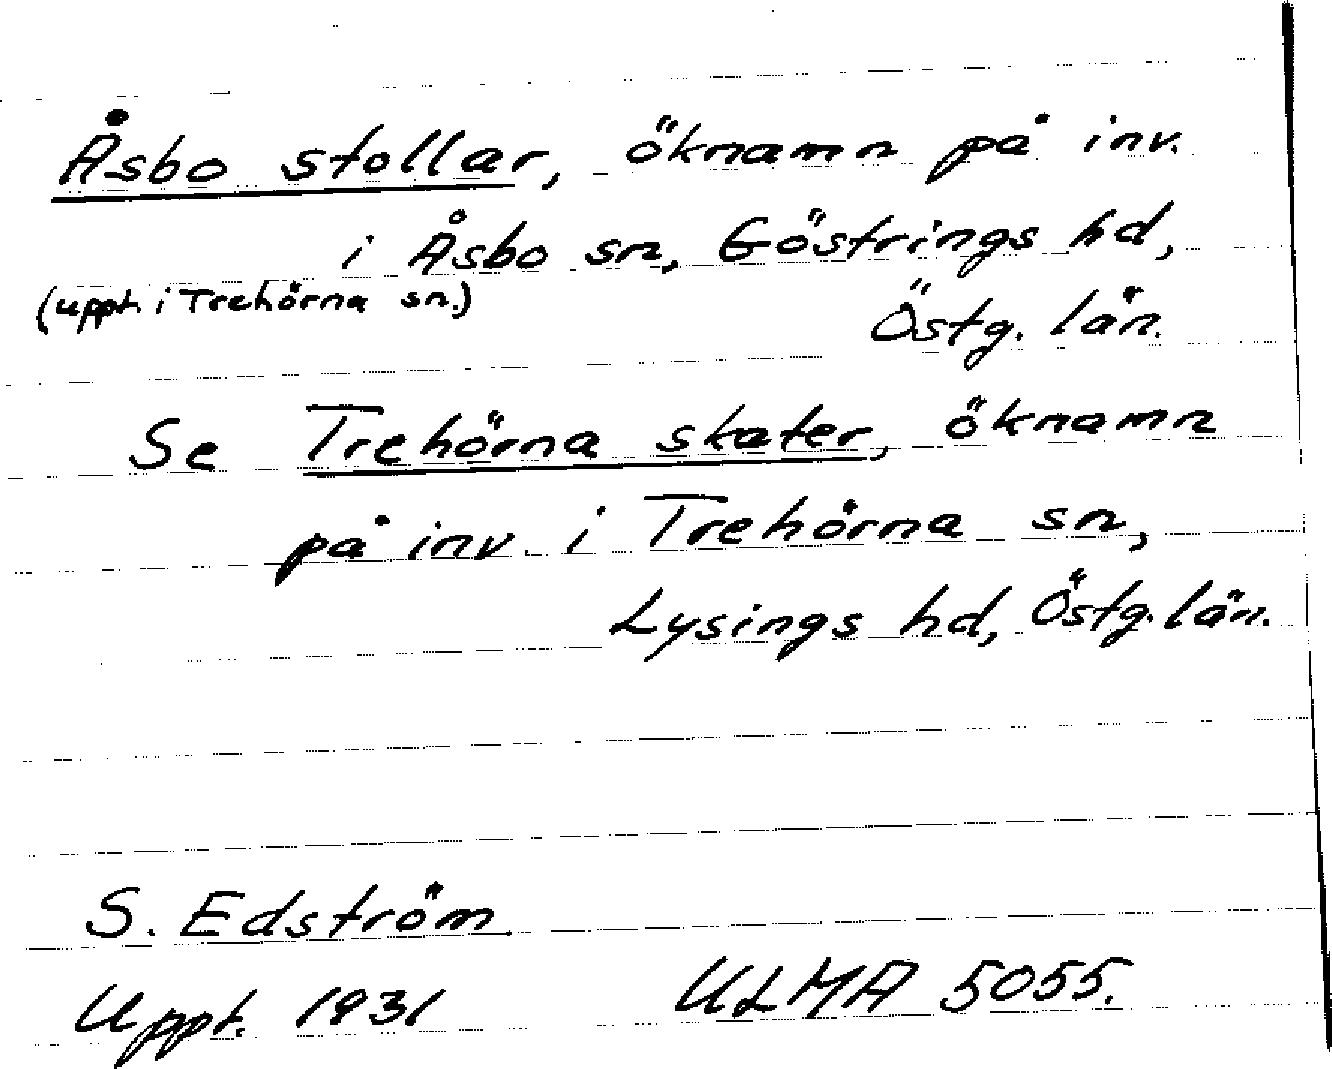 Åsbo stollar, öknamn på inv.
i Åsbo sn, Göstrings hd,
(uppt. i Trehörna sn.)
Östg. län.
Se Trehörna skater, öknamn
på inv. i Trehörna sn,
Lysings hd, Östg. län.
S. Edström
Uppt. 1931 ULMA 5055.